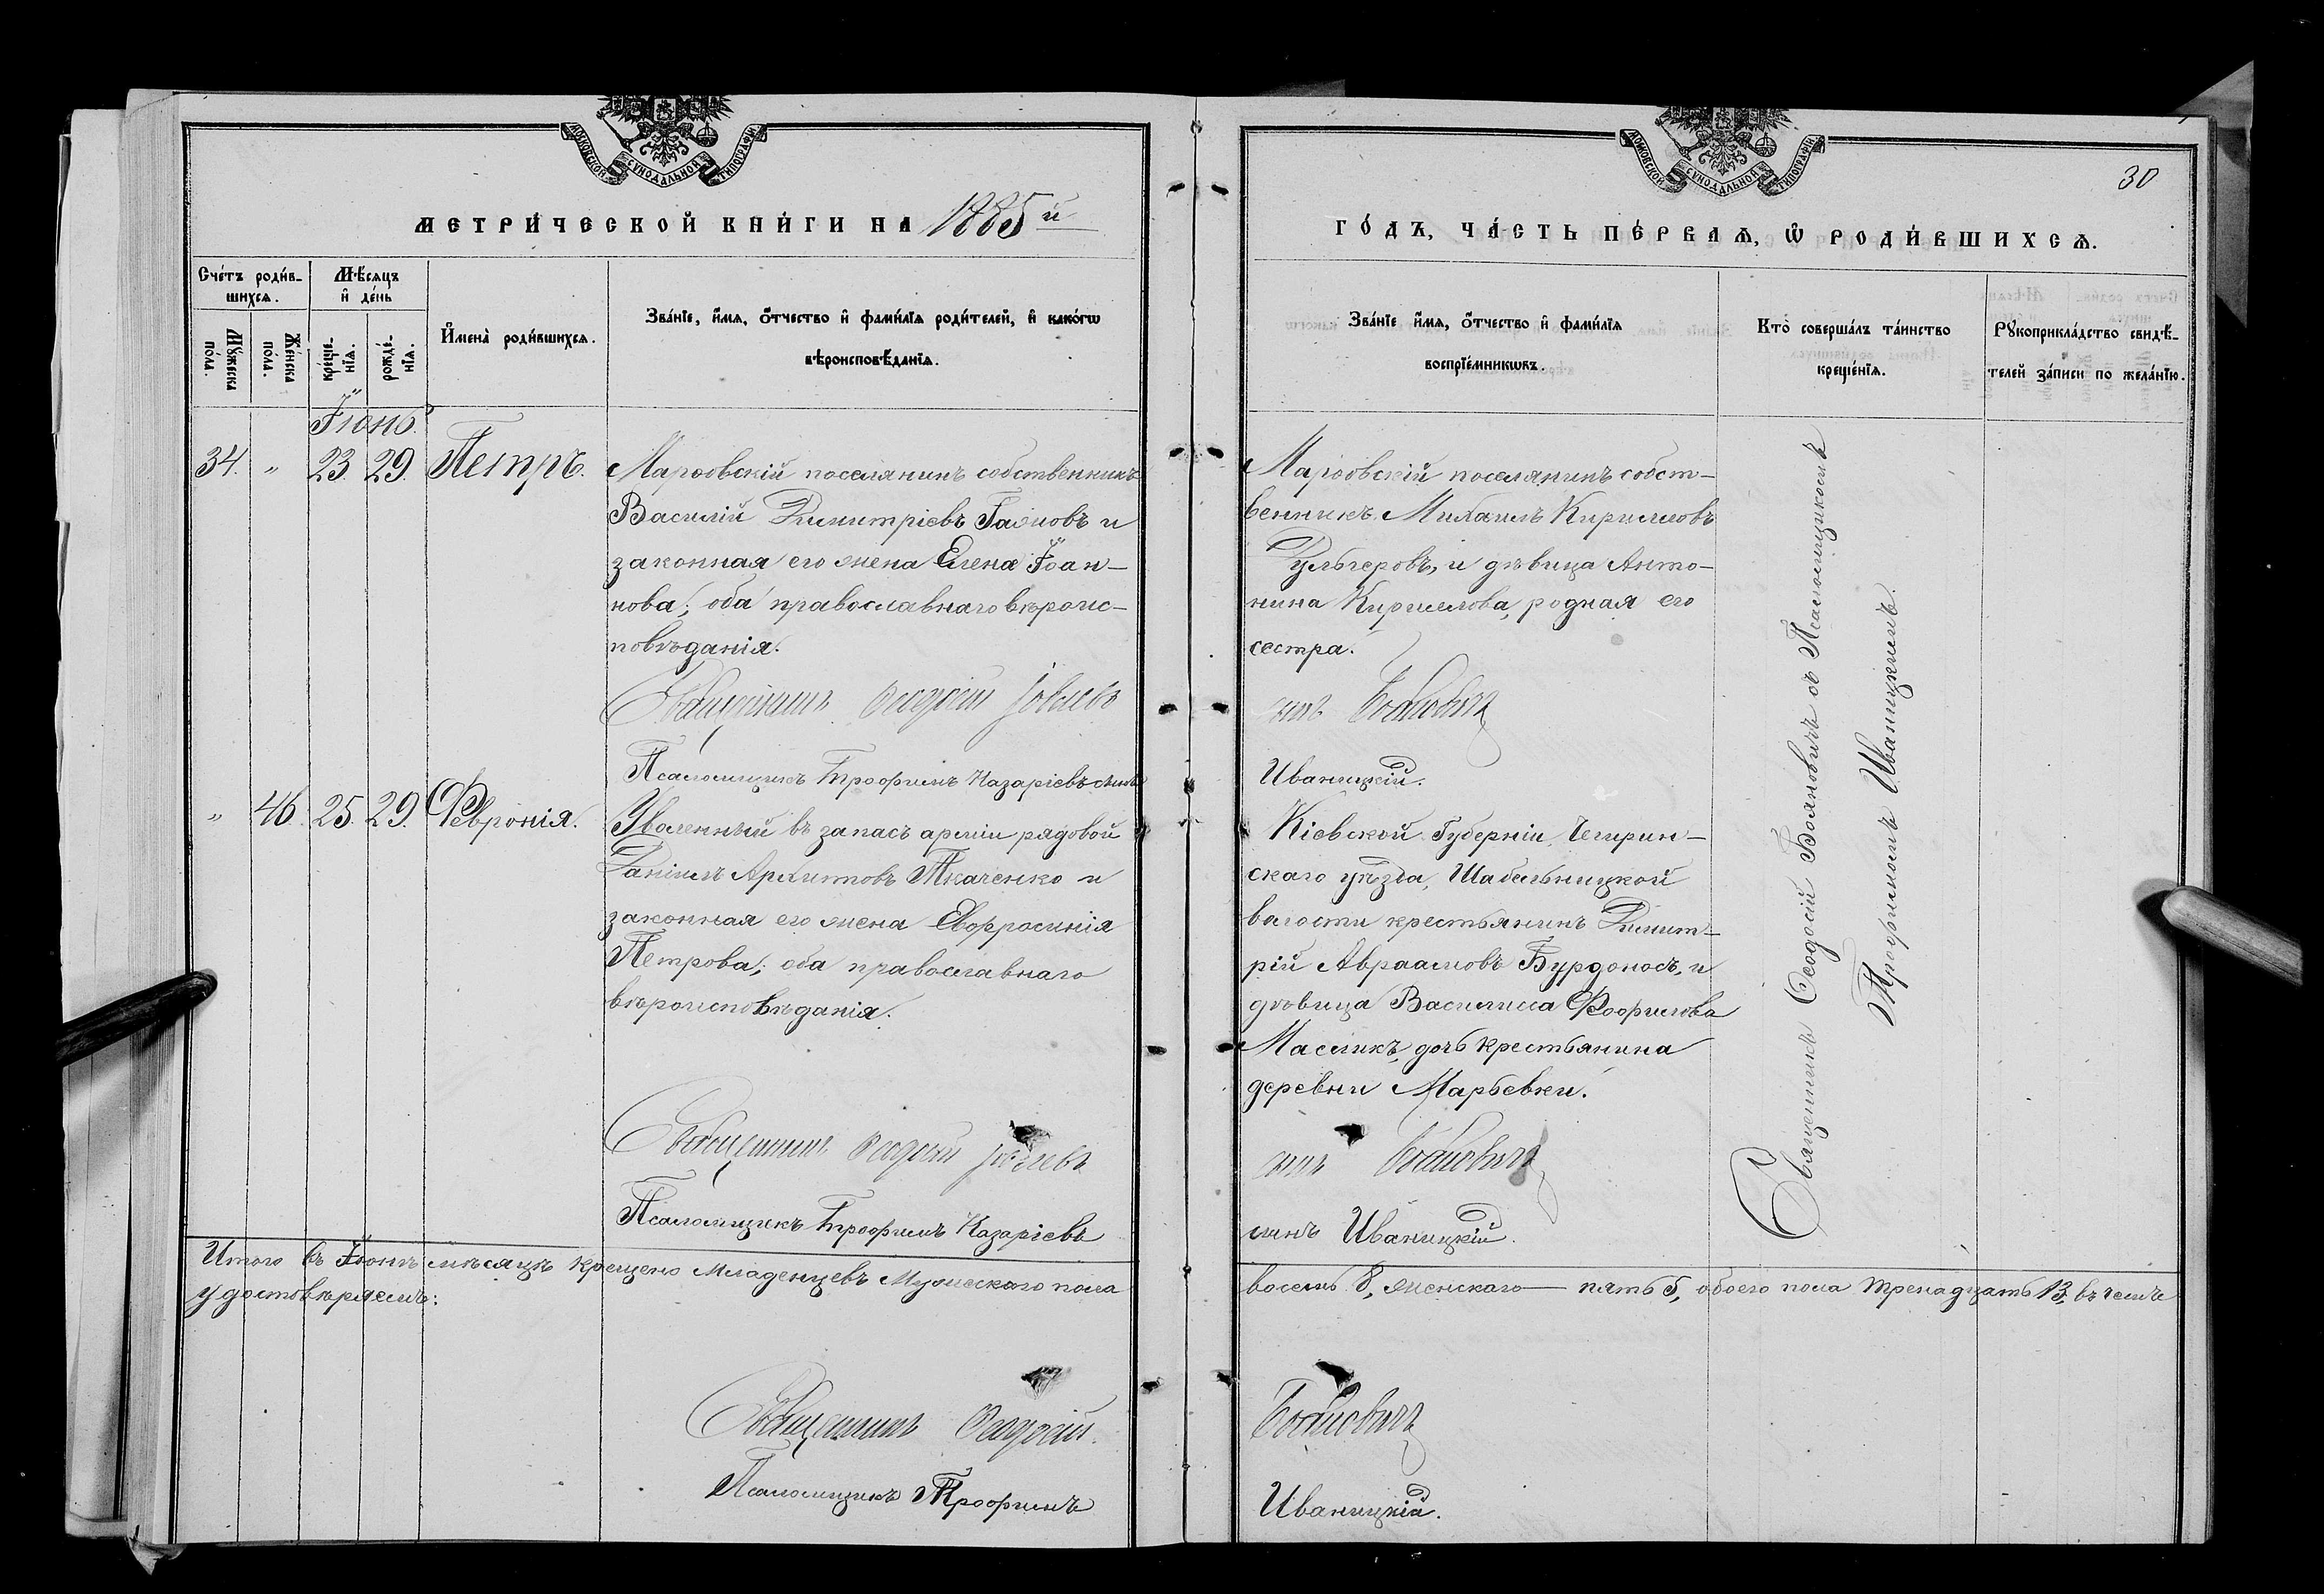 МОСКОВСКОЙ СѴНОДАЛЬНОЙ ТИПОГРАФІИ
МЕТРИ́ЧЕСКОЙ КНИ́ГИ НА 1885й
Сче́тъ роди́в-
шихсѧ.
Мѣ́сѧцъ
и҆ де́нь
Мꙋ́жеска
по́ла.
Же́нска
по́ла.
креще́-
нїѧ.
рожде́-
нїѧ.
И҆мена̀ роди́вшихсѧ.
Зва́нїе, и҆́мѧ, ѻ҆́тчество и҆ фами́лїѧ роди́телей, и҆ како́гѡ
вѣроисповѣ́данїѧ.
Іюнь
34. " 23. 29. Петръ.
Марѳовскій поселянинъ собственникъ
Василій Димитріевъ и
законная его жена Елена Іоан-
нова; оба православнаго вѣроис-
повѣданія.
Священникъ Ѳеодосій
Псаломщикъ Трофимъ Назаріевъ
" 46. 25. 29. Февронія.
Уволенный въ запасъ арміи рядовой
Даніилъ Архиповъ Ткаченко и
законная его жена Евфросинія
Петрова; оба православнаго
вѣроисповѣданія.
Священникъ Ѳеодосій
Псаломщикъ Трофимъ Назаріевъ
Итого въ Іюнѣ мѣсяцѣ крещено младенцевъ мужескаго пола
удостовѣряемъ:
Священникъ Ѳеодосій
Псаломщикъ Трофимъ
МОСКОВСКОЙ СѴНОДАЛЬНОЙ ТИПОГРАФІИ
30
ГО́ДЪ, ЧА́СТЬ ПЕ́РВАѦ, Ѽ РОДИ́ВШИХСѦ.
Зва́нїе и҆́мѧ, ѻ҆́тчество и҆ фами́лїѧ
воспрїе́мникѡвъ.
Кто̀ соверша́лъ та́инство
креще́нїѧ.
Рꙋкоприкла́дство свидѣ́-
телей за́писи по жела́нїю.
Марѳовскій поселянинъ собст-
венникъ Михаилъ Кирилловъ
Дульгеровъ, и дѣвица Анто-
нина Кириллова, родная его
сестра.
Бояновичъ
Иваницкій.
Кіевской Губерніи, Чегирин-
скаго уѣзда, Шабельницкой
волости крестьянинъ Димит-
рій Авраамовъ Бурдоносъ, и
дѣвица Василисса Ѳеофилова
Масликъ, дочь крестьянина
деревни Марьевки.
Бояновичъ
Иваницкій.
восемь 8, женскаго — пять 5, обоего пола тринадцать 13, въ чемъ
Бояновичъ
Иваницкій.
Священникъ Ѳеодосій Бояновичъ съ Псаломщикомъ
Трофимомъ Иваницкимъ.